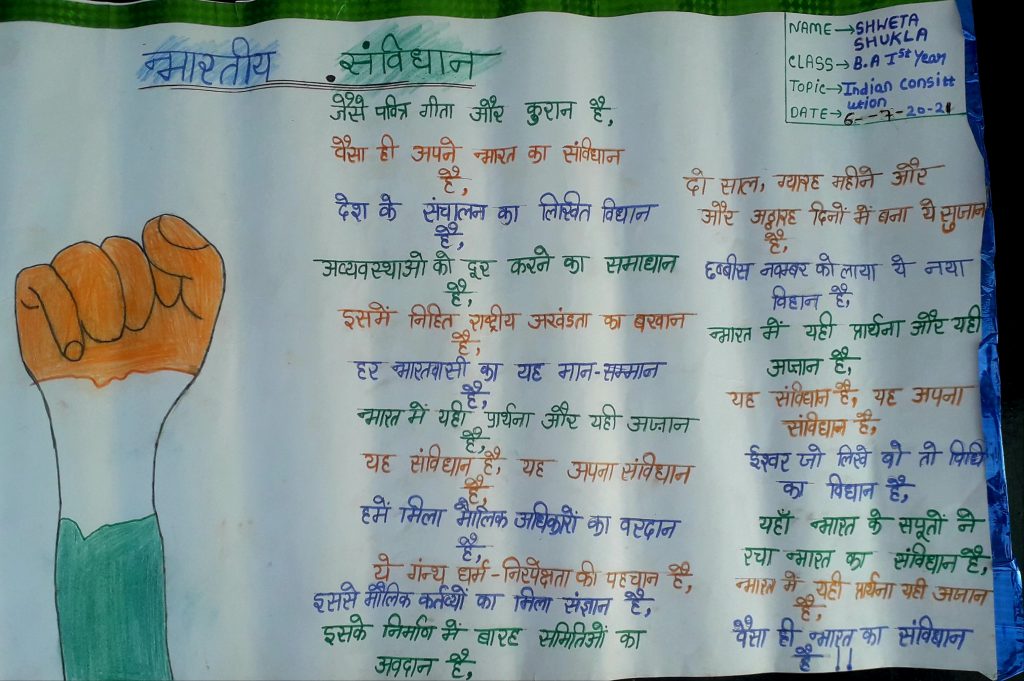 भारतीय संविधान
NAME → SHWETA
SHUKLA
CLASS → B.A Ist Year
TOPIC → Indian Consitt
ution
DATE → 6--7-20-21
जैसे पवित्र गीता और कुरान है,
वैसा ही अपने भारत का संविधान
है,
देश के संचालन का लिखित विधान
है,
अव्यवस्थाओ को दूर करने का समाधान
है,
इसमें निहित राष्ट्रीय अखंडता का बखान
है,
हर भारतवासी का यह मान-सम्मान
है,
भारत में यही प्रार्थना और यही अजान
है,
यह संविधान है, यह अपना संविधान
है,
हमें मिला मौलिक अधिकारों का वरदान
है,
ये गंन्थ धर्म-निरपेक्षता की पहचान है,
इससे मौलिक कर्तव्यों का मिला संज्ञान है,
इसके निर्माण में बारह समितिओं का
अवदान है,
दो साल, ग्यारह महीने और
और अठ्ठारह दिनों में बना ये सुजान
है,
छब्बीस नवम्बर को लाया ये नया
विहान है,
भारत में यही प्रार्थना और यही
अजान है,
यह संविधान है, यह अपना
संविधान है,
ईश्वर जो लिखे वो तो विधि
का विधान है,
यहाँ भारत के सपूतों ने
रचा भारत का संविधान है,
भारत में यही प्रार्थना यही अजान
है,
वैसा ही भारत का संविधान
है !!